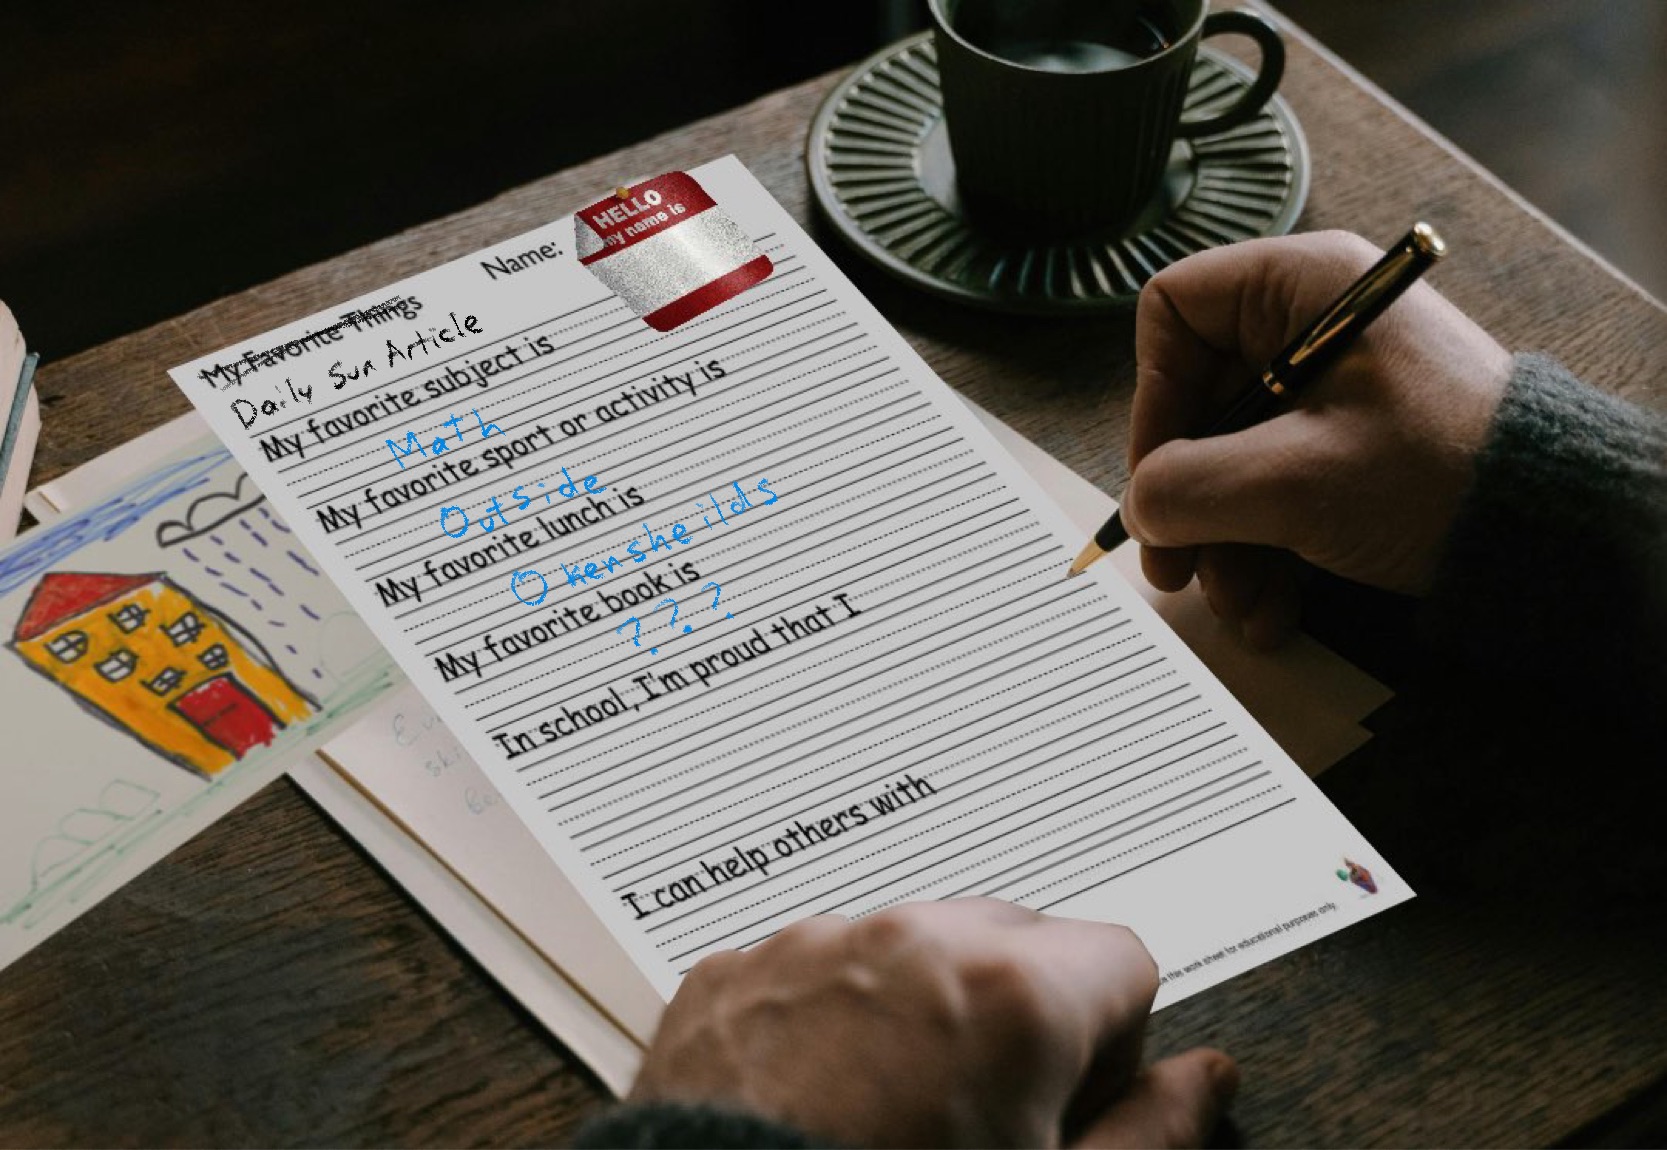 HELLO
my name is
Name:
My Favorite Things
Daily Sun Article
My favorite subject is
Math
My favorite sport or activity is
Outside
My favorite lunch is
Okensheilds
My favorite book is
???
In school, I'm proud that I
I can help others with
this work sheet for educational purposes only.